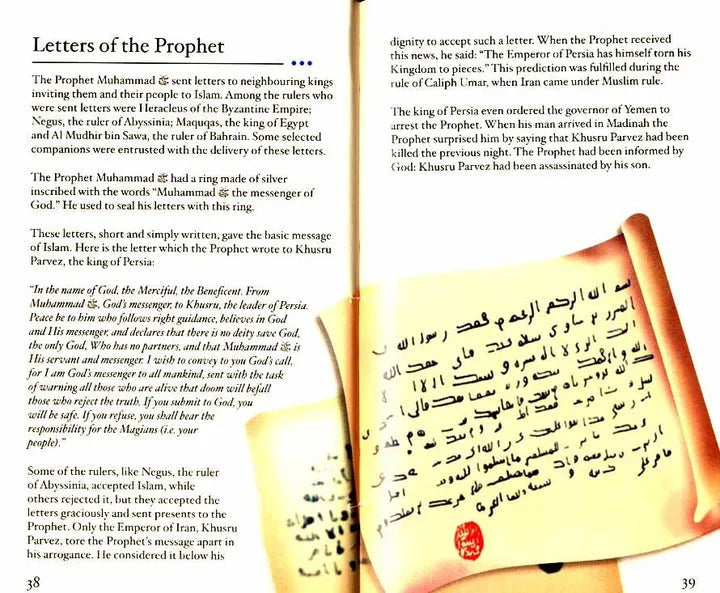 Letters of the Prophet
The Prophet Muhammad ﷺ sent letters to neighbouring kings
inviting them and their people to Islam. Among the rulers who
were sent letters were Heracleus of the Byzantine Empire;
Negus, the ruler of Abyssinia; Maquqas, the king of Egypt
and Al Mudhir bin Sawa, the ruler of Bahrain. Some selected
companions were entrusted with the delivery of these letters.
The Prophet Muhammad ﷺ had a ring made of silver
inscribed with the words “Muhammad ﷺ the messenger of
God.” He used to seal his letters with this ring.
These letters, short and simply written, gave the basic message
of Islam. Here is the letter which the Prophet wrote to Khusru
Parvez, the king of Persia:
“In the name of God, the Merciful, the Beneficent. From
Muhammad ﷺ, God's messenger, to Khusru, the leader of Persia.
Peace be to him who follows right guidance, believes in God
and His messenger, and declares that there is no deity save God,
the only God, Who has no partners, and that Muhammad ﷺ is
His servant and messenger. I wish to convey to you God's call,
for I am God's messenger to all mankind, sent with the task
of warning all those who are alive that doom will befall
those who reject the truth. If you submit to God, you
will be safe. If you refuse, you shall bear the
responsibility for the Magians (i.e. your
people).”
Some of the rulers, like Negus, the ruler
of Abyssinia, accepted Islam, while
others rejected it, but they accepted the
letters graciously and sent presents to the
Prophet. Only the Emperor of Iran, Khusru
Parvez, tore the Prophet's message apart in
his arrogance. He considered it below his
38
dignity to accept such a letter. When the Prophet received
this news, he said: “The Emperor of Persia has himself torn his
Kingdom to pieces.” This prediction was fulfilled during the
rule of Caliph Umar, when Iran came under Muslim rule.
The king of Persia even ordered the governor of Yemen to
arrest the Prophet. When his man arrived in Madinah the
Prophet surprised him by saying that Khusru Parvez had been
killed the previous night. The Prophet had been informed by
God: Khusru Parvez had been assassinated by his son.
بسم الله الرحمن الرحيم من محمد رسول الله
39